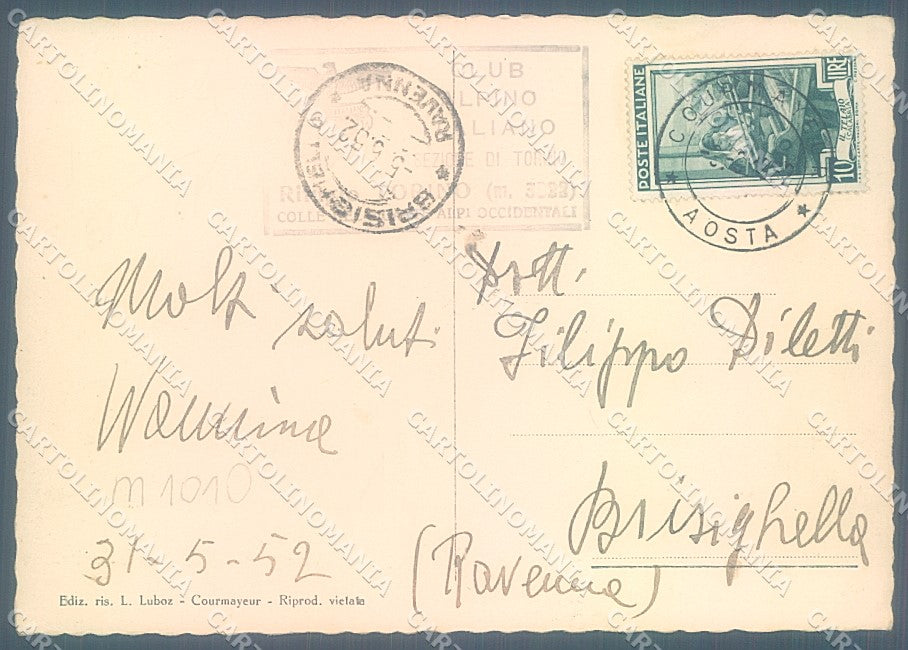 CLUB
ALPINO
ITALIANO
SEZIONE DI TORINO
TORINO (m. 3322)
COLLE ALPI OCCIDENTALI
BRISIGHELLA
RAVENNA
5.52
POSTE ITALIANE
LIRE
10
AOSTA
Molti saluti
Wannina
m 1010
31-5-52
Dott.
Filippo Diletti
Brisighella
(Ravenna)
Ediz. ris. L. Luboz - Courmayeur - Riprod. vietata
CARTOLINOMANIA